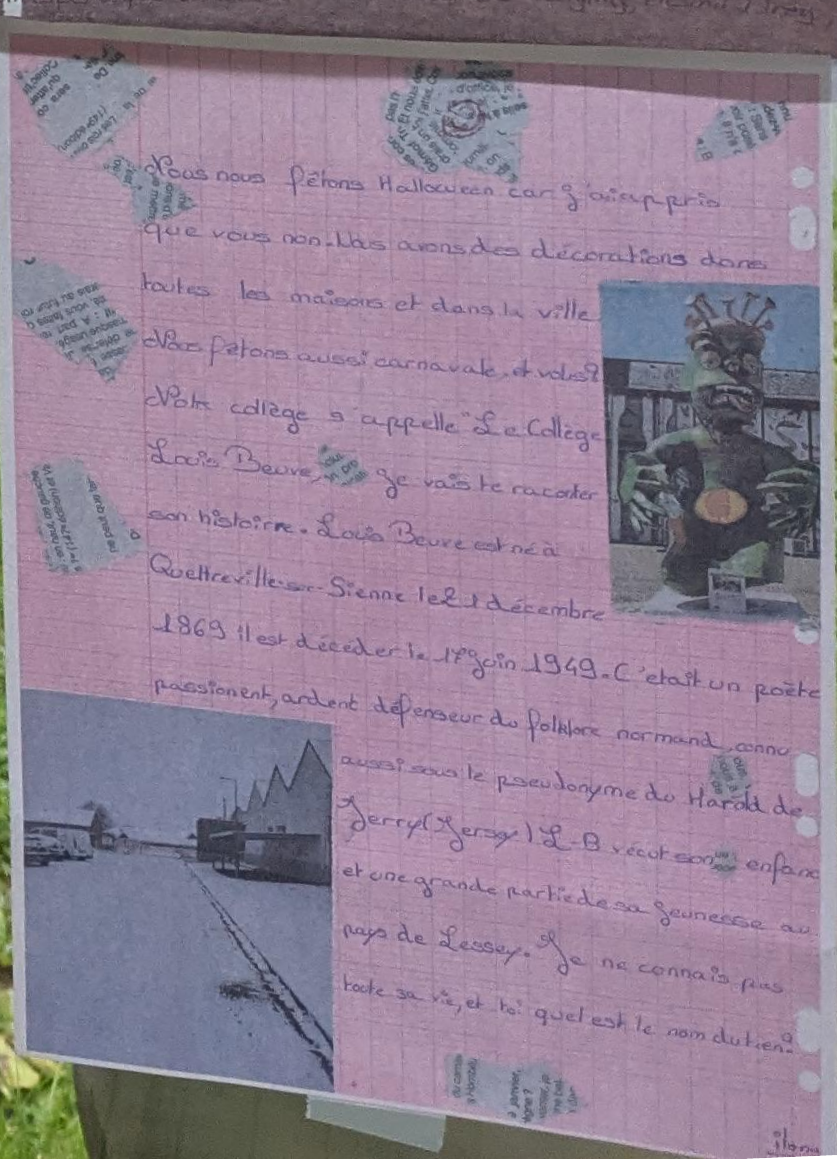 Nous nous fêtons Halloween car j'ai appris
que vous non. Nous avons des décorations dans
toutes les maisons et dans la ville
Nous fêtons aussi carnavale, et vous?
Notre collège s'appelle "Le Collège
Louis Beuve, Je vais te raconter
son histoire. Louis Beuve est né à
Quettreville-sur-Sienne le 21 décembre
1869 il est décéder le 17 juin 1949. C'était un poète
passionent, ardent défenseur du folklore normand, connu
aussi sous le pseudonyme du Harold de
Jerry (Jersey) L-B vécut son enfance
et une grande partie de sa jeunesse au
pays de Lessay. Je ne connais pas
toute sa vie, et toi quel est le nom du tien?